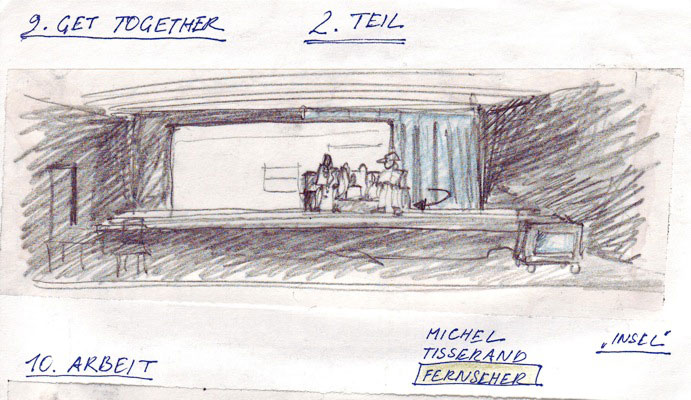 9. GET TOGETHER
2. TEIL
MICHEL
TISSERAND
FERNSEHER
„INSEL“
10. ARBEIT